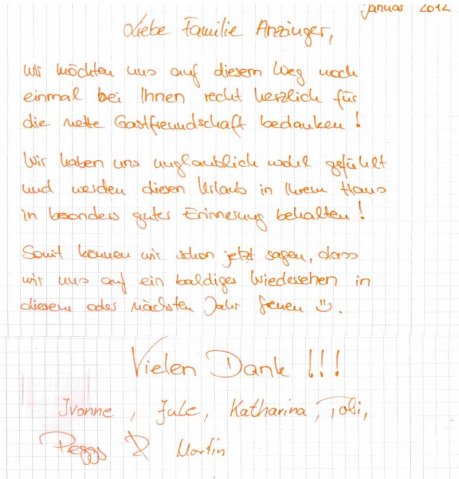 Januar 2012
Liebe Familie Anzinger,
wir möchten uns auf diesem Weg noch
einmal bei Ihnen recht herzlich für
die nette Gastfreundschaft bedanken!
Wir haben uns unglaublich wohl gefühlt
und werden diesen Urlaub in Ihrem Haus
in besonders guter Erinnerung behalten!
Somit können wir schon jetzt sagen, dass
wir uns auf ein baldiges Wiedersehen in
diesem oder nächsten Jahr freuen ☺.
Vielen Dank !!!
Ivonne, Jule, Katharina, Tobi,
Peggy & Martin